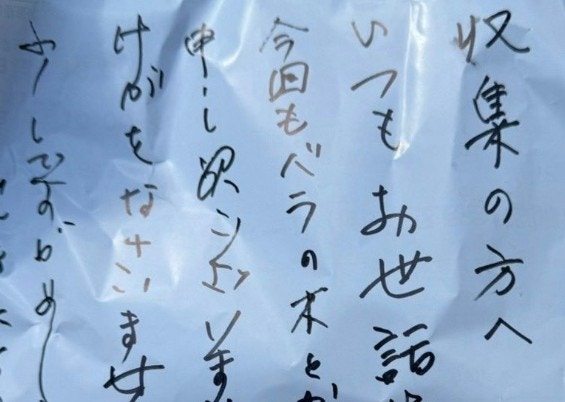 収集の方へ
いつもお世話
今回もバラの木とか
申し訳ございま
けがをなさいませ
少しですがめし